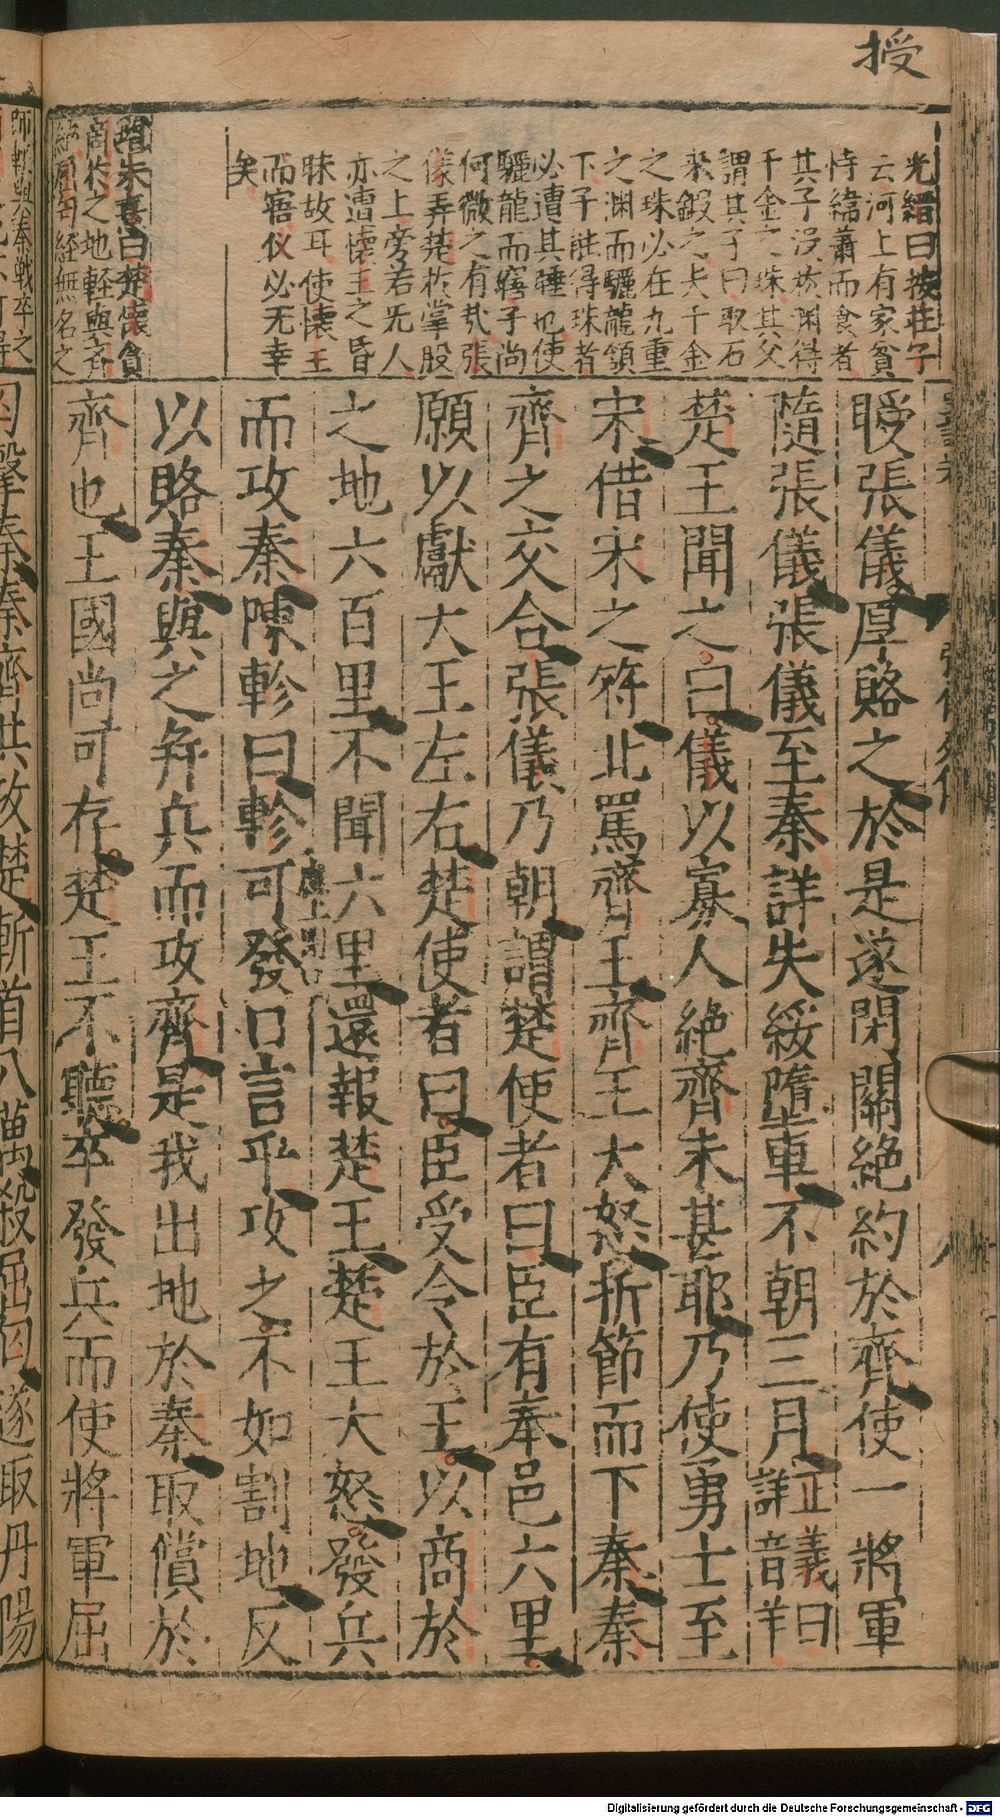 授
光縉曰按莊子
云河上有家貧
恃緯蕭而食者
其子没於渊得
千金之珠其父
謂其子曰取石
来鍜之夫千金
之珠必在九重
之渊而驪龍頷
下子能得珠者
必遭其睡也使
驪龍而寤子尚
何微之有㢤張
儀弄楚於掌股
之上旁若旡人
亦遭懷王之昏
昧故耳使懷王
而寤仪必无幸
矣
曰楚懷貪
商於之地軽與
經無名之
授張儀厚賂之於是遂閉關絶約於齊使一將軍
隨張儀張儀至秦詳失綏墮車不朝三月正義曰詳音羊
楚王聞之曰儀以寡人絶齊未甚耶乃使勇士至
宋借宋之符北罵齊王齊王大怒折節而下秦秦
齊之交合張儀乃朝謂楚使者曰臣有奉邑六里
願以獻大王左右楚使者曰臣受令於王以商於
之地六百里不聞六里還報楚王楚王大怒發兵
而攻秦陳軫曰軫可發口言乎攻之不如割地反
以賂秦與之并兵而攻齊是我出地於秦取償於
齊也王國尚可存楚王不聽卒發兵而使將軍屈
匄擊秦秦齊共攻楚斬首八萬殺屈匄遂取丹陽
Digitalisierung gefördert durch die Deutsche Forschungsgemeinschaft - DFG